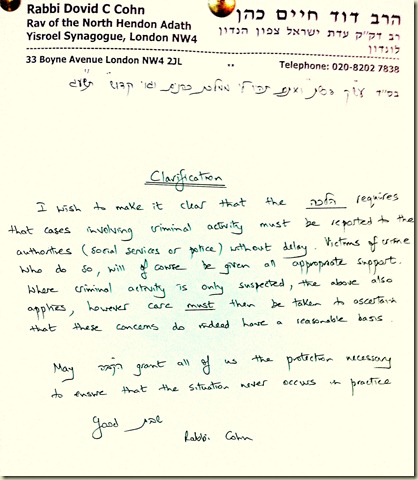 Rabbi Dovid C Cohn
Rav of the North Hendon Adath
Yisroel Synagogue, London NW4
הרב דוד חיים כהן
רב דק"ק עדת ישראל צפון הנדון
לונדון
33 Boyne Avenue London NW4 2JL
Telephone: 020-8202 7838
בס"ד עש"ק פרשת ואתם תהיו לי ממלכת כהנים וגוי קדוש תשע"ג
Clarification
I wish to make it clear that the הלכה requires
that cases involving criminal activity must be reported to the
authorities (social services or police) without delay. Victims of crime
who do so, will of course be given all appropriate support.
Where criminal activity is only suspected, the above also
applies, however care must then be taken to ascertain
that these concerns do indeed have a reasonable basis.
May הקב"ה grant all of us the protection necessary
to ensure that the situation never occurs in practice
Good שבת
Rabbi Cohn